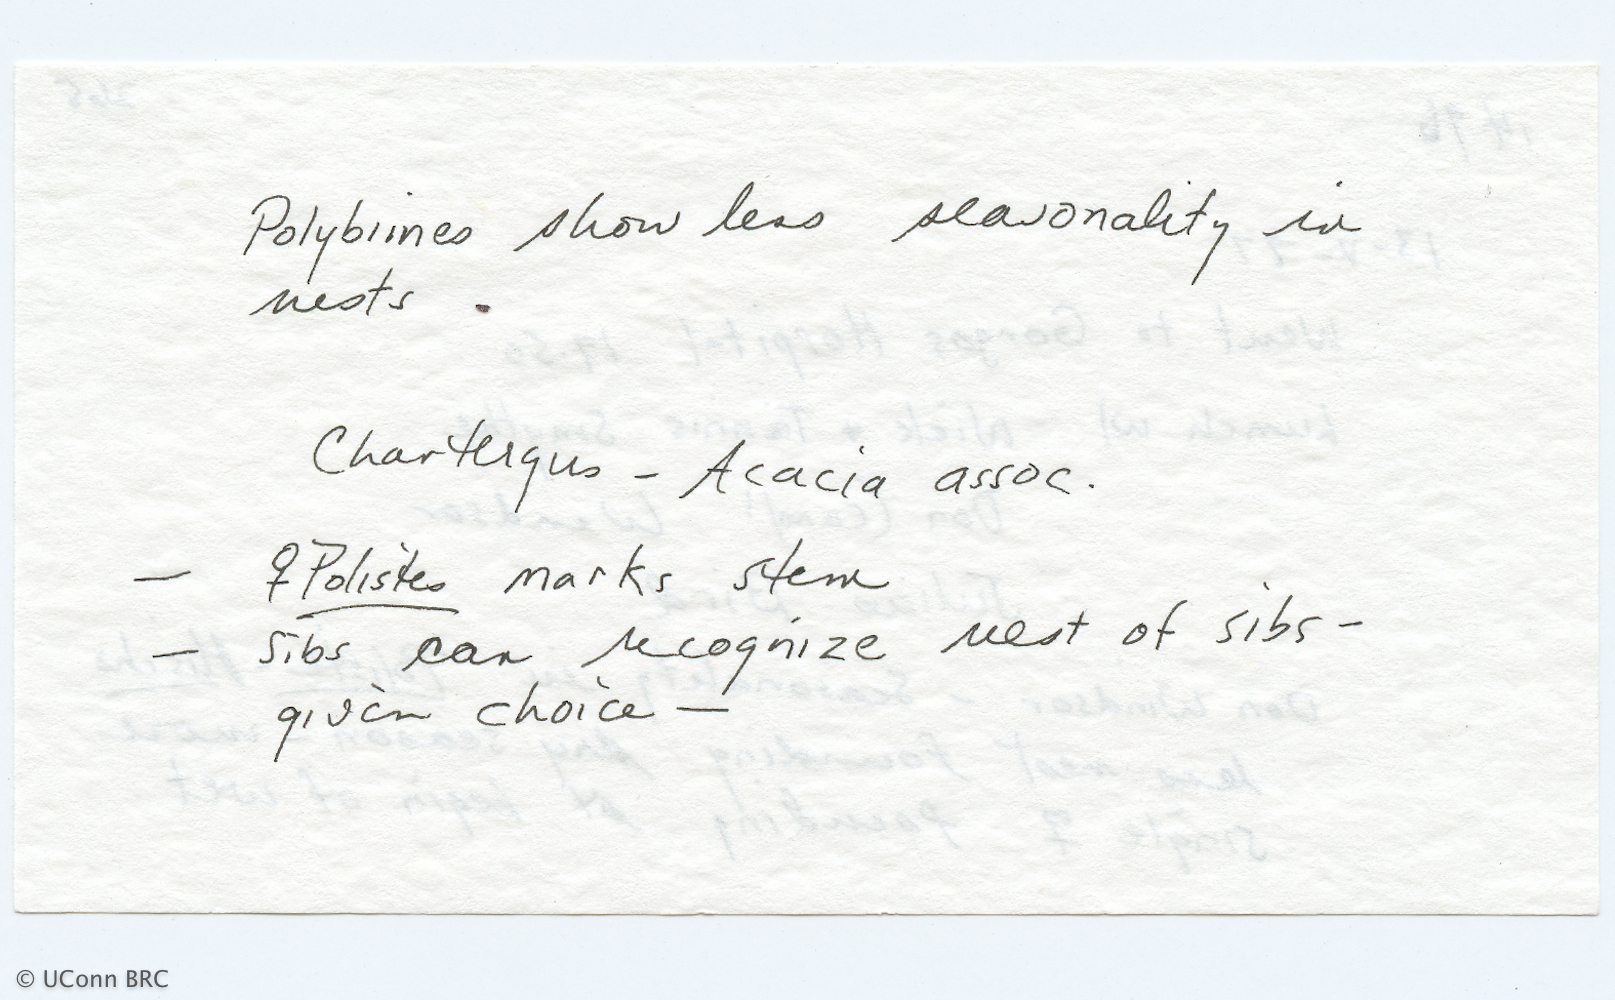 Polybiines show less seasonality in
nests.
Chartergus - Acacia assoc.
— ♀ Polistes marks stem
— sibs can recognize nest of sibs -
given choice —
© UConn BRC